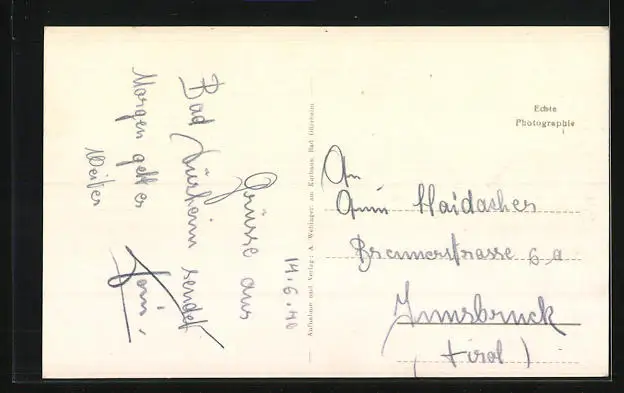 14.6.40
Grüsse aus
Bad Dürrheim sendet
Morgen geht es
weiter
Toni.
Aufnahme und Verlag: A. Weltinger am Kurhaus, Bad Dürrheim
Echte
Photographie
An
Anni Haidacher
Brennerstrasse 6a
Innsbruck
(Tirol)